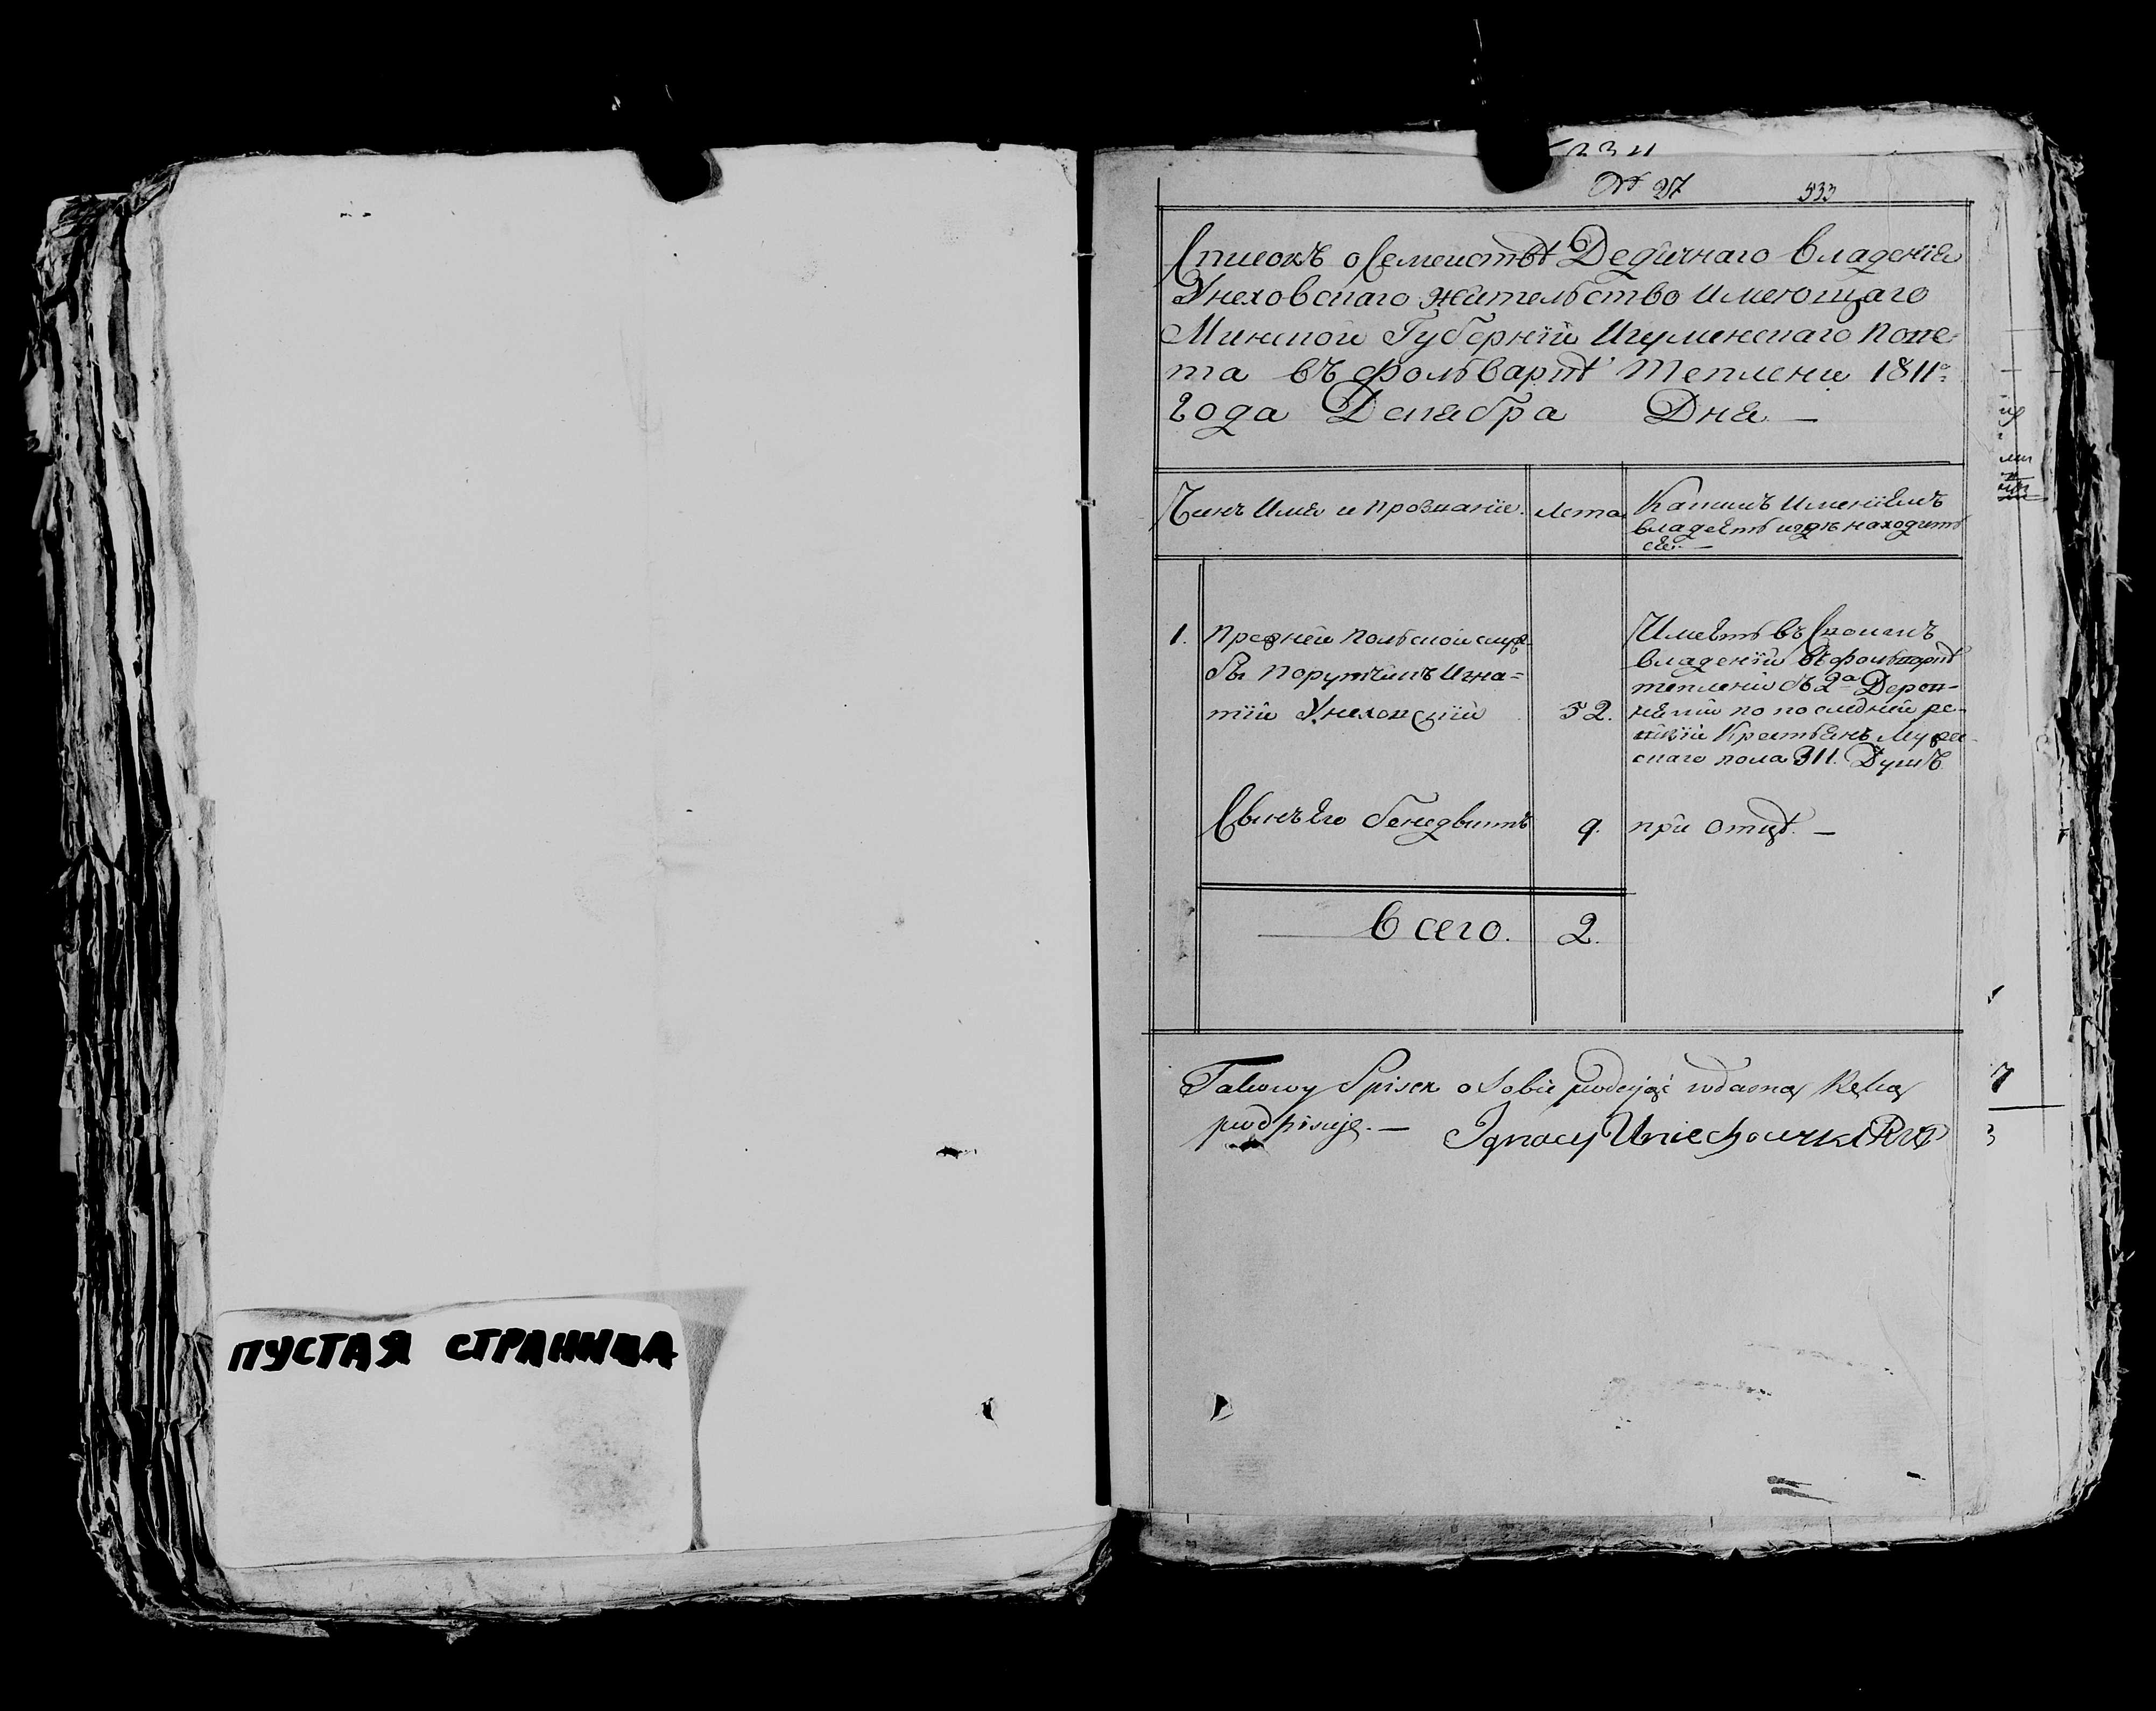 ПУСТАЯ СТРАНИЦА
№ 27 533
Списокъ о Семействѣ Дедичнаго владения
Унеховскаго жительство имеющаго
Минской Губернïи Игуменскаго пове-
та въ фольваркѣ Теплени 1811го
года Декабря Дня —
Чинъ Имя и прозванïе. лета Какимъ Именïемъ
владѣетъ и где находит
ся. —
1. Прежней Польской служ-
бы Поручикъ Игна=
тïй Унеховскïй 52.
Имеетъ въ Своемъ
владенïй въ фольваркѣ
теплени съ 2а Дерев-
нями по последней ре-
визïй Крестьянъ Муже-
скаго пола 311. Душъ
Сынъ Его бенедиктъ 9. при отцѣ. —
Всего. 2.
Takowy Spisek o Sobie podając własną Ręką
podpisuję. — Ignacy Uniechowski